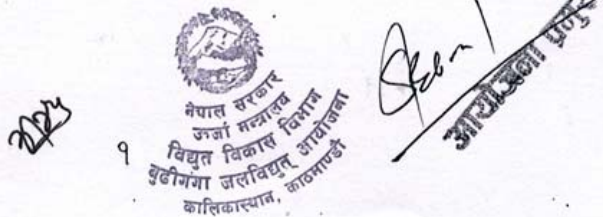 नेपाल सरकार
उर्जा मन्त्रालय
विद्युत विकास विभाग
बुढीगंगा जलविद्युत् आयोजना
कालिकास्थान, काठमाण्डौ
१
आयोजना प्रमुख